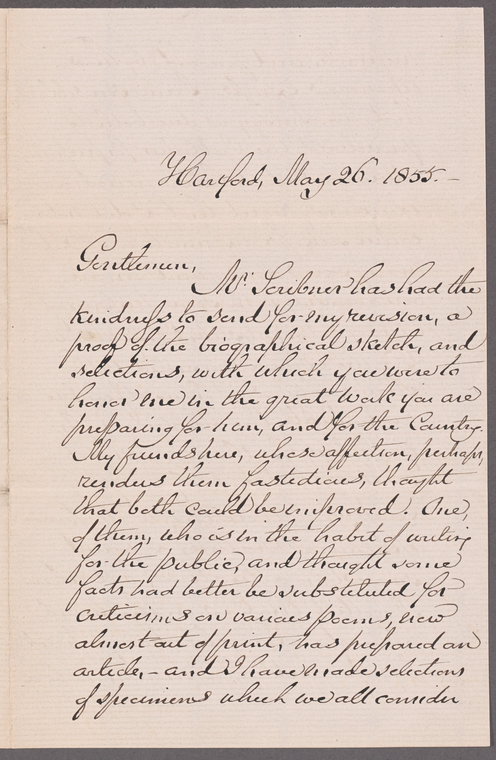 Hartford, May 26. 1855. -
Gentlemen,
Mr. Scribner has had the
kindness to send for my revision, a
proof of the biographical sketch, and
selections, with which you were to
honor me in the great work you are
preparing for him, and for the Country.
My friends here, whose affection, perhaps,
renders them fastidious, thought
that both could be improved. One,
of them, who is in the habit of writing
for the public, and thought some
facts had better be substituted for
criticisms on various poems, now
almost out of print, has prepared an
article, - and I have made selections
of specimens which we all consider